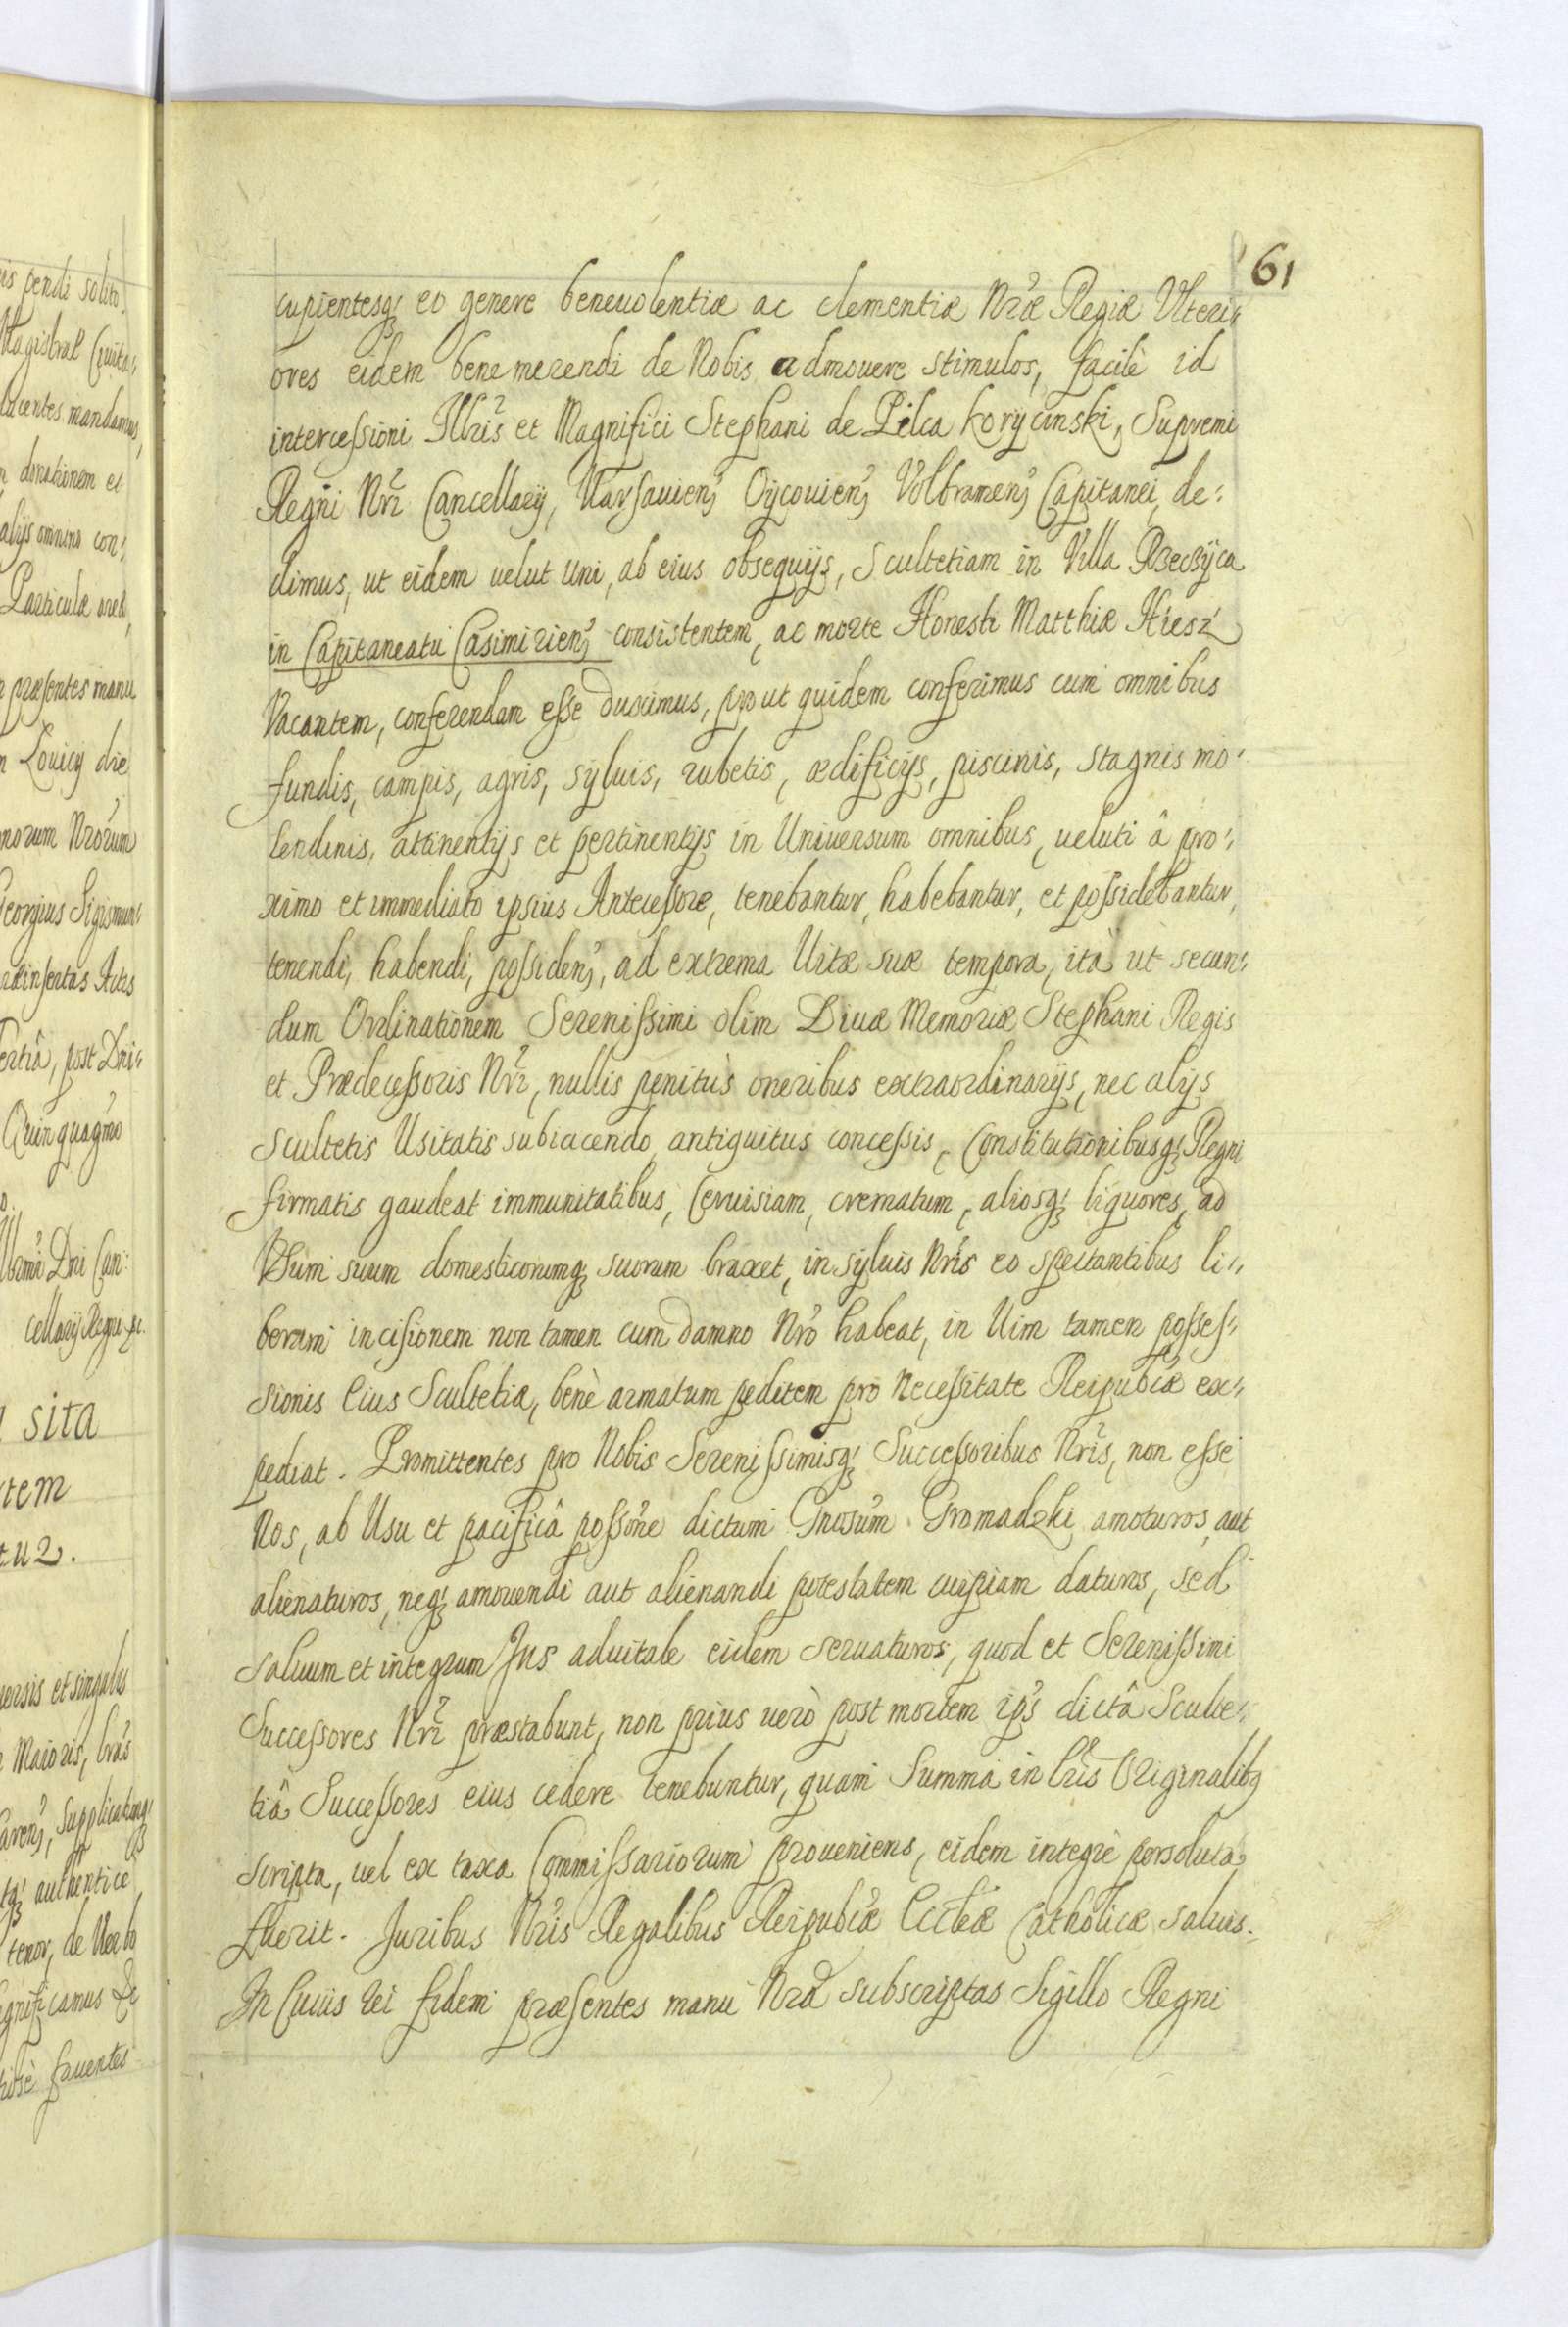 61
cupientesq₃ eo genere beneuolentiæ ac clementiæ Nræ Regiæ Vlteri⸗
ores eidem bene merendi de Nobis admouere stimulos, facilè id
intercessioni Illris et Magnifici Stephani de Pilca Korycinski, Supremi
Regni Nri Cancellarij, Varsauien₃ Oycouien₃ Volbramen₃ Capitanei, de⸗
dimus, ut eidem uelut Uni, ab eius obsequijs, Scultetiam in Villa
in Capitaneatu Casimirien₃ consistentem, ac morte Honesti Matthiæ Hiesz
Vacantem, conferendam esse duximus, prout quidem conferimus cum omnibus
fundis, campis, agris, syluis, rubetis, ædificijs, piscinis, stagnis mo⸗
lendinis, attinentijs et pertinentijs in Uniuersum omnibus, ueluti â pro⸗
ximo et immediato ipsius Antecessore, tenebantur, habebantur, et possidebantur,
tenendi, habendi, possiden₃, ad extrema Uitæ suæ tempora, ità ut secun⸗
dum Ordinationem Serenissimi olim Diuæ Memoriæ Stephani Regis
et Prædecessoris Nri, nullis penitùs oneribus extraordinarijs, nec alijs
Scultetis Usitatis subiacendo, antiquitus concessis, Constitutionibusq₃ Regni
firmatis gaudeat immunitatibus, Ceruisiam, crematum, aliosq₃ liquores, ad
Usum suum domesticorumq₃ suorum braxet, in syluis Nris eo spectantibus li⸗
beram incisionem non tamen cum damno Nro habeat, in Uim tamen posses⸗
sionis Eius Scultetiæ, benè armatum peditem pro Necessitate Reipublæ ex⸗
pediat. Promittentes pro Nobis Serenissimisq₃ Successoribus Nris, non esse
Nos, ab Usu et pacificâ possõne dictum Gnosum Gromadzki amoturos, aut
alienaturos, neq₃ amouendi aut alienandi potestatem cuipiam daturos, sed
saluum et integrum Jus aduitale eidem seruaturos, quod et Serenissimi
Successores Nri præstabunt, non prius uerò post mortem ips dictâ Sculte⸗
tiâ Successores eius cedere tenebuntur, quam Summa in Lris Originalib₃
scripta, uel ex taxa Commissariorum proueniens, eidem integrè persoluta
fuerit. Juribus Nris Regalibus Reipublæ Ecclæ Catholicæ saluis.
In Cuius rei fidem præsentes manu Nra subscriptas Sigillo Regni
is pendi solito.
donationem et
alijs omnino con⸗
Particulæ
præsentes manu
Louicij die
norum Nrorum
eorgius Sigismun⸗
insertas Actis
post Dni⸗
Quinquagmo
Dni Can⸗
cellarij Regni
sita
tem
tur.
uersis et singulis
Maioris, lras
authentice
tenor, de Uerbo
fauentes